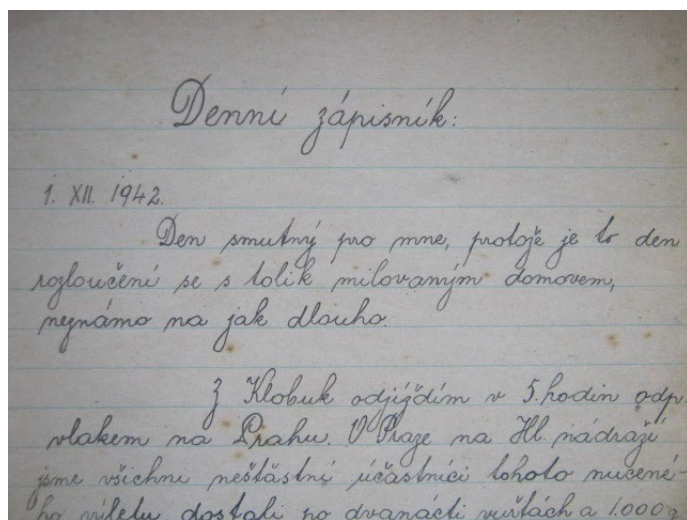 Denní zápisník:
1. XII. 1942.
Den smutný pro mne, protože je to den
rozloučení se s tolik milovaným domovem,
neznámo na jak dlouho.
Z Klobuk odjíždím v 5.hodin odp.
vlakem na Prahu. V Praze na Hl. nádraží
jsme všichni nešťastní účastníci tohoto nucené-
ho výletu dostali po dvanácti vuřtách a 1.000 g